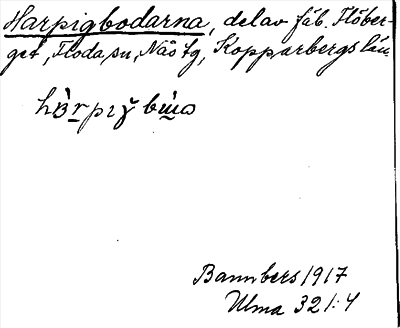 Harpigbodarna, del av fäb. Flöber-
get, Floda sn, Nås tg, Kopparbergs län
Bannbers 1917
Ulma 321:4